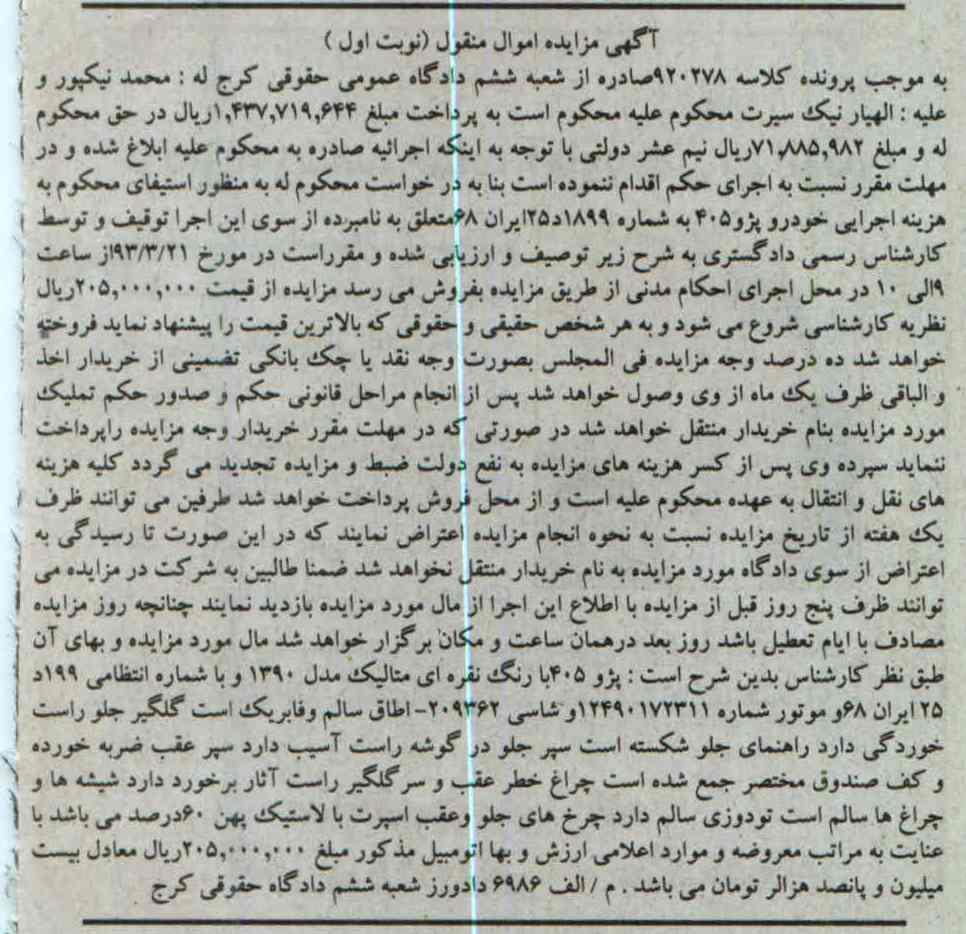 آگهی مزایده اموال منقول (نوبت اول )
به موجب پرونده کلاسه ۹۲۰۲۷۸صادره از شعبه ششم دادگاه عمومی حقوقی کرج له : محمد نیکپور و
علیه : الهیار نیک سیرت محکوم علیه محکوم است به پرداخت مبلغ ۱,۴۳۷,۷۱۹,۶۴۴ریال در حق محکوم
له و مبلغ ۷۱,۸۸۵,۹۸۲ریال نیم عشر دولتی با توجه به اینکه اجرائیه صادره به محکوم علیه ابلاغ شده و در
مهلت مقرر نسبت به اجرای حکم اقدام ننموده است بنا به در خواست محکوم له به منظور استیفای محکوم به
هزینه اجرایی خودرو پژو۴۰۵ به شماره ۱۸۹۹د۲۵ایران ۶۸متعلق به نامبرده از سوی این اجرا توقیف و توسط
کارشناس رسمی دادگستری به شرح زیر توصیف و ارزیابی شده و مقرراست در مورخ ۹۳/۳/۲۱از ساعت
۹الی ۱۰ در محل اجرای احکام مدنی از طریق مزایده بفروش می رسد مزایده از قیمت ۲۰۵,۰۰۰,۰۰۰ریال
نظریه کارشناسی شروع می شود و به هر شخص حقیقی و حقوقی که بالاترین قیمت را پیشنهاد نماید فروخته
خواهد شد ده درصد وجه مزایده فی المجلس بصورت وجه نقد یا چک بانکی تضمینی از خریدار اخذ
و الباقی ظرف یک ماه از وی وصول خواهد شد پس از انجام مراحل قانونی حکم و صدور حکم تملیک
مورد مزایده بنام خریدار منتقل خواهد شد در صورتی که در مهلت مقرر خریدار وجه مزایده راپرداخت
ننماید سپرده وی پس از کسر هزینه های مزایده به نفع دولت ضبط و مزایده تجدید می گردد کلیه هزینه
های نقل و انتقال به عهده محکوم علیه است و از محل فروش پرداخت خواهد شد طرفین می توانند ظرف
یک هفته از تاریخ مزایده نسبت به نحوه انجام مزایده اعتراض نمایند که در این صورت تا رسیدگی به
اعتراض از سوی دادگاه مورد مزایده به نام خریدار منتقل نخواهد شد ضمنا طالبین به شرکت در مزایده می
توانند ظرف پنج روز قبل از مزایده با اطلاع این اجرا از مال مورد مزایده بازدید نمایند چنانچه روز مزایده
مصادف با ایام تعطیل باشد روز بعد درهمان ساعت و مکان برگزار خواهد شد مال مورد مزایده و بهای آن
طبق نظر کارشناس بدین شرح است : پژو ۴۰۵با رنگ نقره ای متالیک مدل ۱۳۹۰ و با شماره انتظامی ۱۹۹د
۲۵ ایران ۶۸و موتور شماره ۱۲۴۹۰۱۷۲۳۱۱و شاسی ۲۰۹۳۶۲- اطاق سالم وفابریک است گلگیر جلو راست
خوردگی دارد راهنمای جلو شکسته است سپر جلو در گوشه راست آسیب دارد سپر عقب ضربه خورده
و کف صندوق مختصر جمع شده است چراغ خطر عقب و سر گلگیر راست آثار برخورد دارد شیشه ها و
چراغ ها سالم است تودوزی سالم دارد چرخ های جلو وعقب اسپرت با لاستیک پهن ۶۰درصد می باشد با
عنایت به مراتب معروضه و موارد اعلامی ارزش و بها اتومبیل مذکور مبلغ ۲۰۵,۰۰۰,۰۰۰ریال معادل بیست
میلیون و پانصد هزالر تومان می باشد . م / الف ۶۹۸۶ دادورز شعبه ششم دادگاه حقوقی کرج